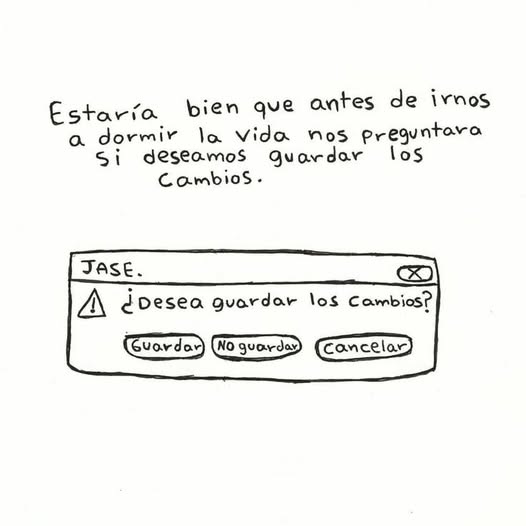 Estaría bien que antes de irnos
a dormir la vida nos preguntara
si deseamos guardar los
cambios.
JASE. X
! ¿Desea guardar los cambios?
Guardar No guardar Cancelar